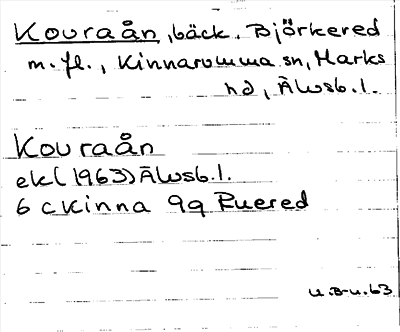 Kouraån, bäck. Björkered
m.fl., Kinnarumma sn, Marks
hd, Älvsb.l.
Kouraån
ek (1963) Älvsb.l.
6 c Kinna 9g Ruered
u.B-u.63